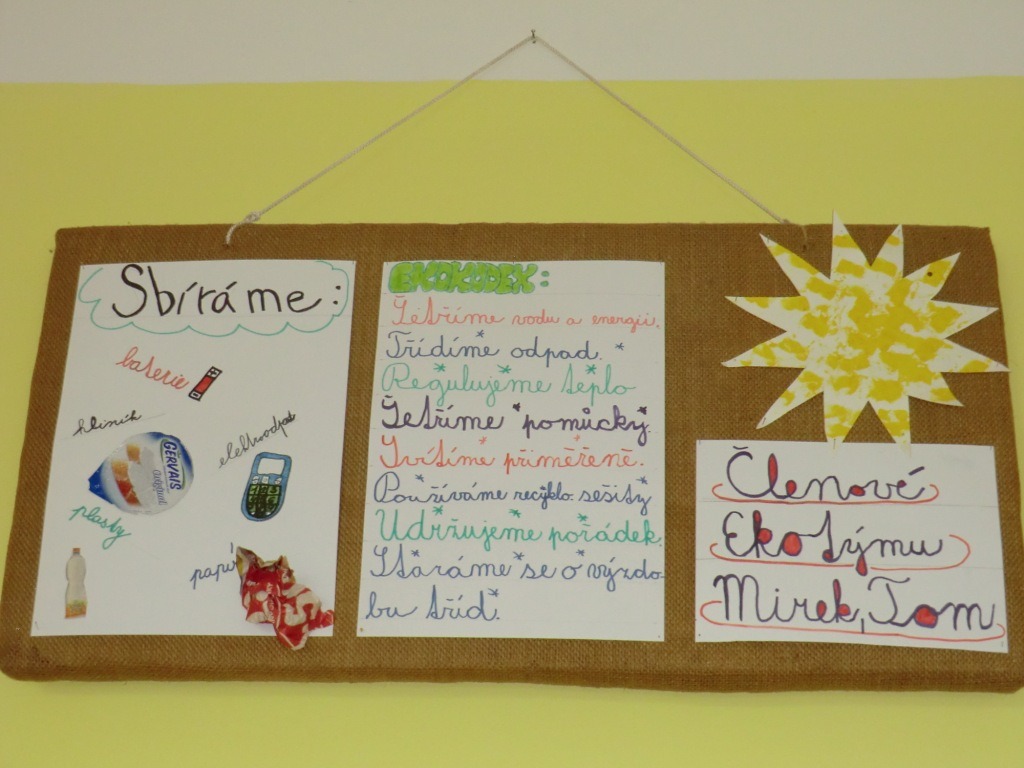 Sbíráme:
baterie
hliník
GERVAIS
elektroodpad
plasty
papír
EKOKODEX:
Šetříme vodu a energii.
Třídíme odpad.
Regulujeme teplo
Šetříme pomůcky.
Svítíme přiměřeně.
Používáme recyklo. sešity
Udržujeme pořádek.
Staráme se o výzdo-
bu tříd.
Členové
Ekotýmu
Mirek, Tom